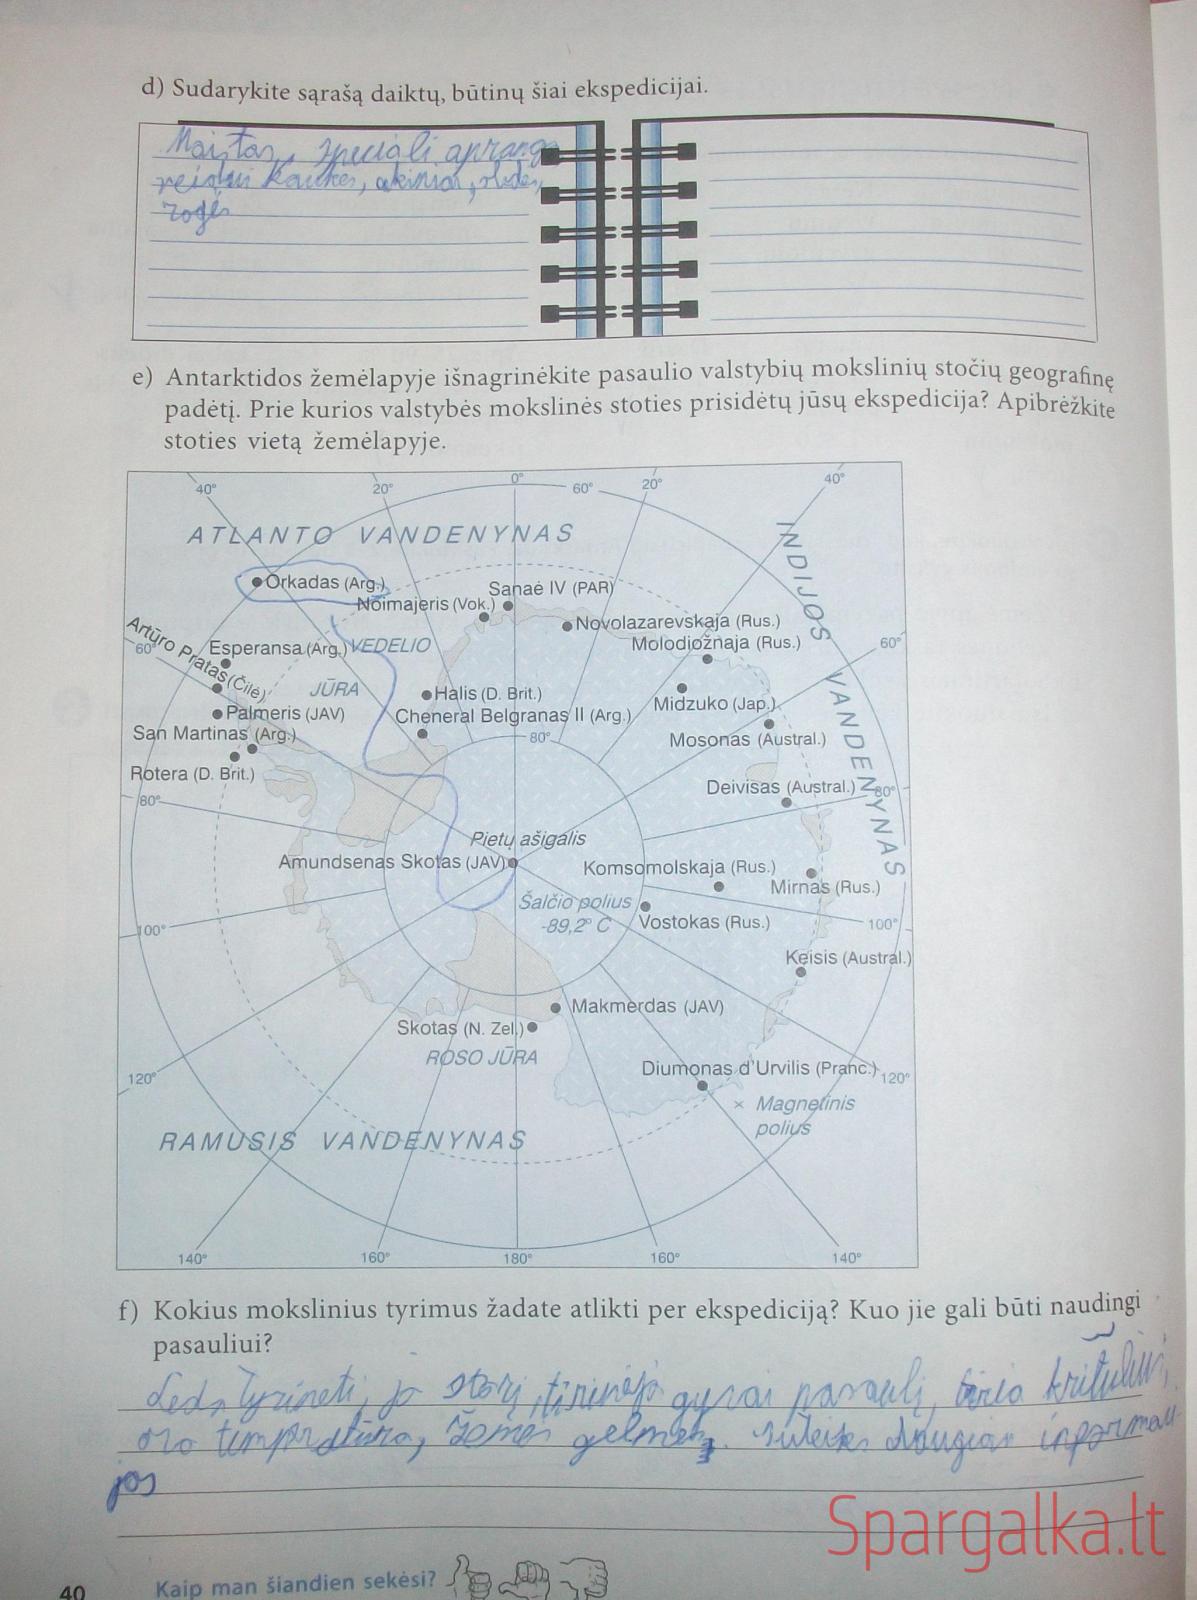 d) Sudarykite sąrašą daiktų, būtinų šiai ekspedicijai.
Maistas, speciali apranga
veidui kaukės, akiniai, slidės,
rogės
e) Antarktidos žemėlapyje išnagrinėkite pasaulio valstybių mokslinių stočių geografinę
padėtį. Prie kurios valstybės mokslinės stoties prisidėtų jūsų ekspedicija? Apibrėžkite
stoties vietą žemėlapyje.
40° 20° 0° 60° 20° 40°
ATLANTO VANDENYNAS
INDIJOS VANDENYNAS
Orkadas (Arg.)
Sanaė IV (PAR)
Noimajeris (Vok.)
Novolazarevskaja (Rus.)
Artūro Pratas (Čilė)
60°
Esperansa (Arg.)
VEDELIO
JŪRA
Molodiožnaja (Rus.)
60°
Halis (D. Brit.)
Midzuko (Jap.)
Palmeris (JAV)
Cheneral Belgranas II (Arg.)
San Martinas (Arg.)
80°
Mosonas (Austral.)
Rotera (D. Brit.)
Deivisas (Austral.)
80°
80°
Pietų ašigalis
Amundsenas Skotas (JAV)
Komsomolskaja (Rus.)
Mirnas (Rus.)
Šalčio polius
-89,2° C
Vostokas (Rus.)
100°
100°
Keisis (Austral.)
Makmerdas (JAV)
Skotas (N. Zel.)
ROSO JŪRA
Diumonas d'Urvilis (Pranc.)
120°
120°
Magnetinis
polius
RAMUSIS VANDENYNAS
140° 160° 180° 160° 140°
f) Kokius mokslinius tyrimus žadate atlikti per ekspediciją? Kuo jie gali būti naudingi
pasauliui?
Ledą tyrinėti, jo storį, gyvąjį pasaulį, kritulius,
oro tempratūra, žemės gelmes. suteiks daugiau informaci
jos
Spargalka.lt
40 Kaip man šiandien sekėsi?